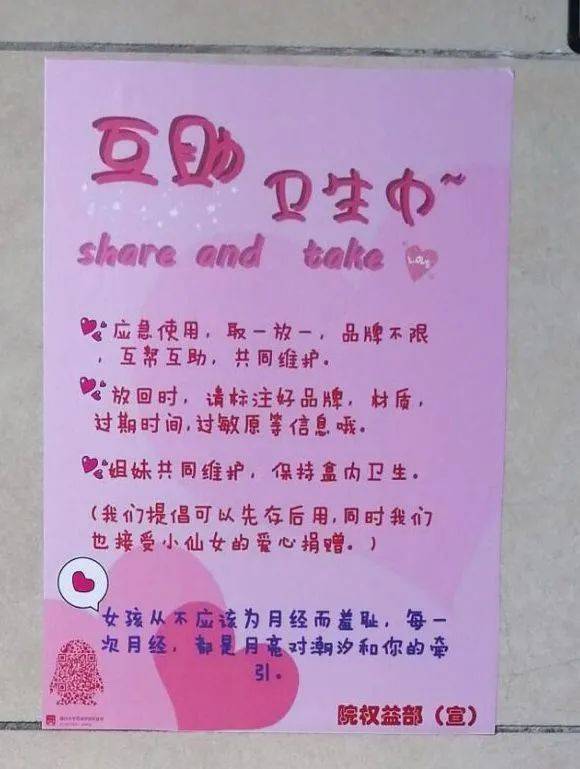 互助
卫生巾~
share and take
LOVE
应急使用，取一放一，品牌不限
，互帮互助，共同维护。
放回时，请标注好品牌，材质，
过期时间,过敏原等信息哦。
姐妹共同维护，保持盒内卫生。
(我们提倡可以先存后用,同时我们
也接受小仙女的爱心捐赠。)
女孩从不应该为月经而羞耻，每一
次月经，都是月亮对潮汐和你的牵
引。
院权益部（宣）